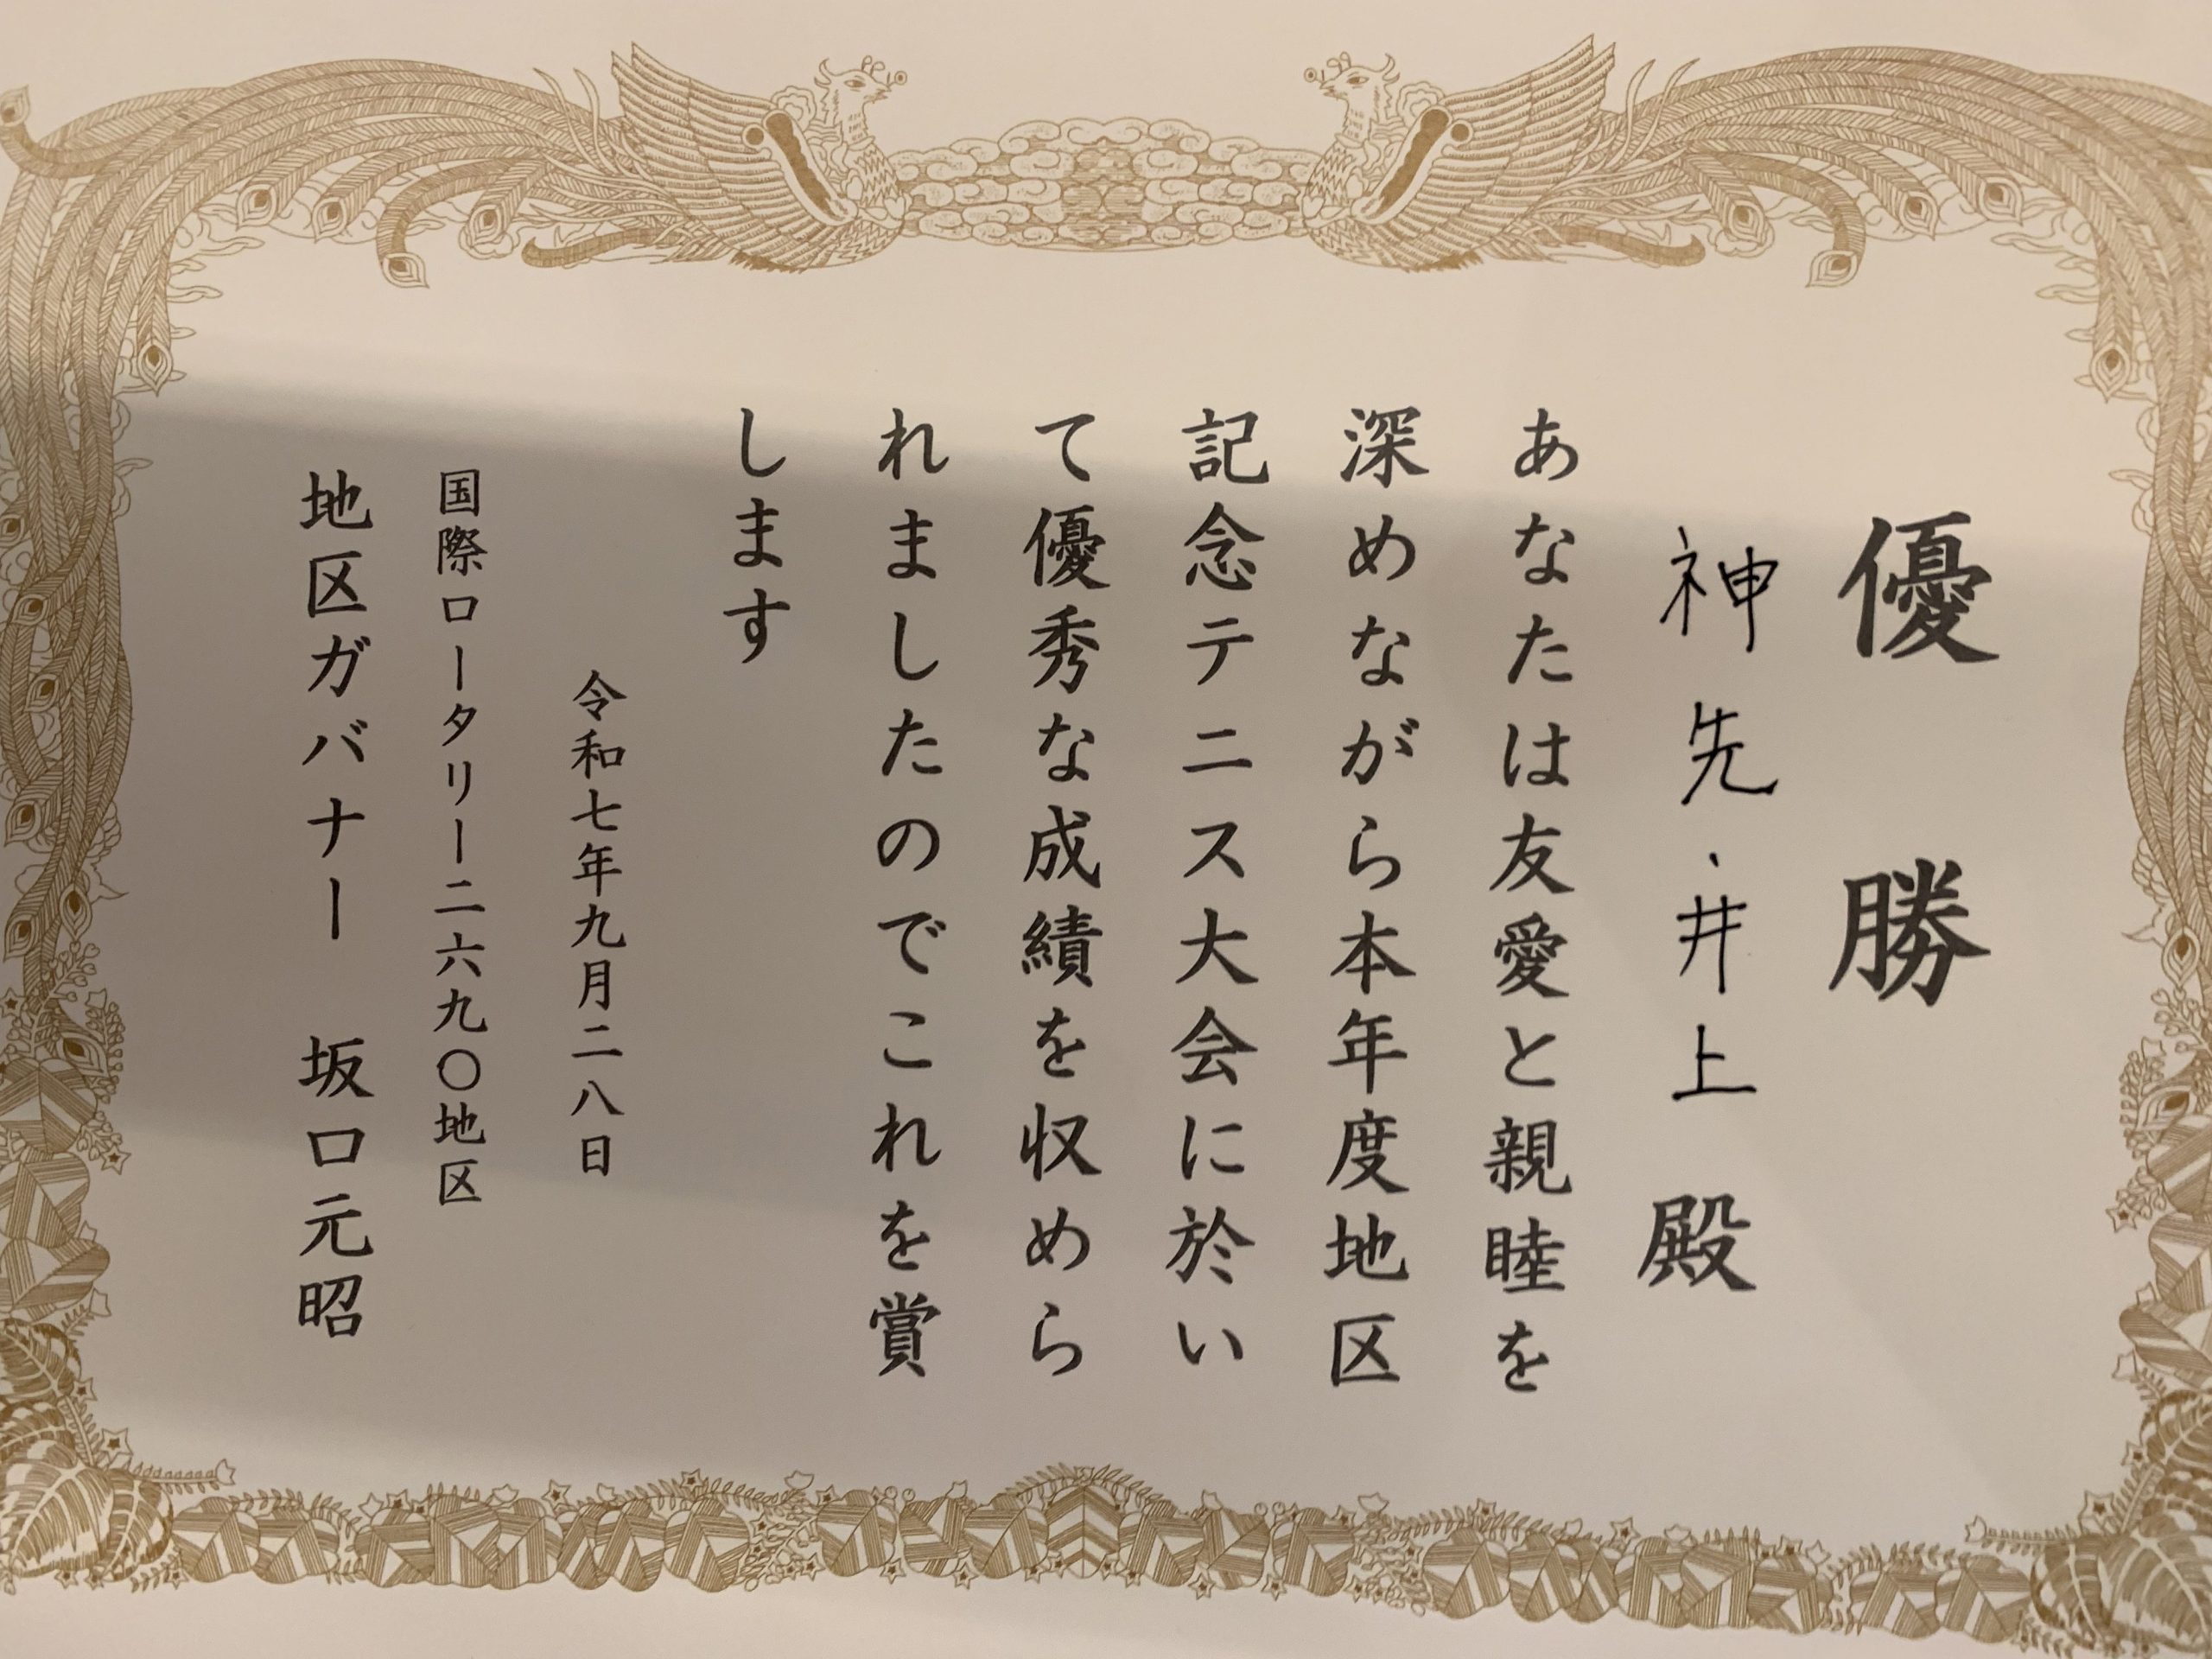 優勝
神先・井上 殿
あなたは友愛と親睦を
深めながら本年度地区
記念テニス大会に於い
て優秀な成績を収めら
れましたのでこれを賞
します
令和七年九月二八日
国際ロータリー二六九〇地区
地区ガバナー 坂口元昭